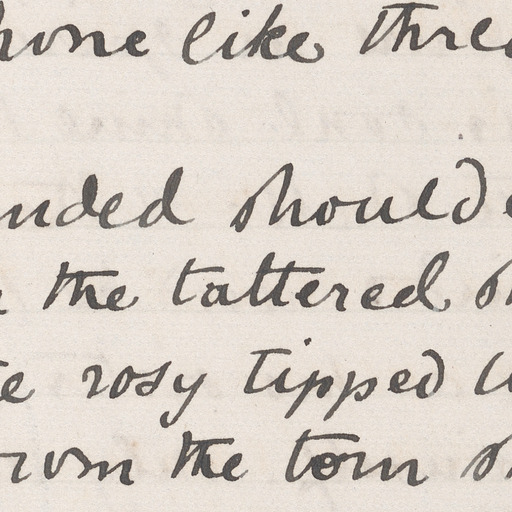 hone like thre
nded should
the tattered sh
te rosy tipped
rom the torn sh